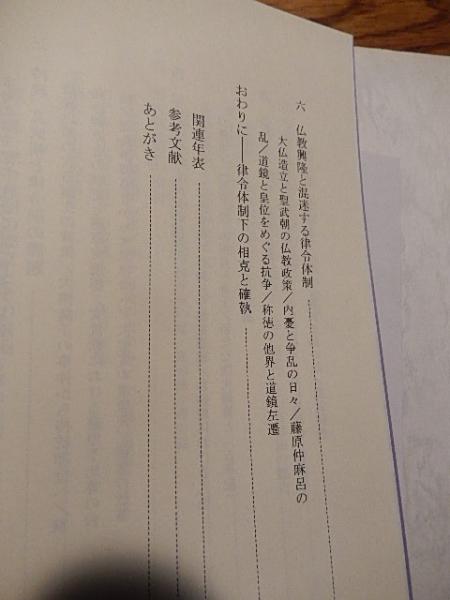 六 仏教興隆と混迷する律令体制
大仏造立と聖武朝の仏教政策／内憂と争乱の日々／藤原仲麻呂の
乱／道鏡と皇位をめぐる抗争／称徳の他界と道鏡左遷
おわりに──律令体制下の相克と確執
関連年表
参考文献
あとがき